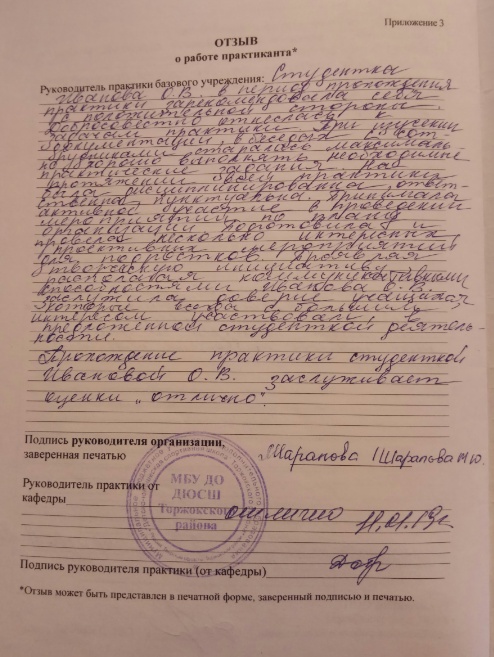 Приложение 3
ОТЗЫВ
о работе практиканта*
Руководитель практики базового учреждения: Студентка
Иванова О.В. в период прохождения
практики зарекомендовала себя
с положительной стороны.
Добросовестно отнеслась к
заданиям практики. При изучении
документации, в беседах с сот-
рудниками старалась максималь-
но хорошо выполнять необходимые
практические задания. На
протяжении всей практики
была дисциплинированна, ответ-
ственна, пунктуальна. Принимала
активное участие в проведении
мероприятий по плану
организации. Подготовила и
провела несколько интересных,
мероприятий
для подростков. Проявляя
творческую инициативу,
располагая коммуникативными
способностями Иванова О.В.
заслужила доверие учащихся,
которые всегда с большим
интересом участвовали в
предложенной студенткой деятель-
ности.
Прохождение практики студенткой
Ивановой О.В. заслуживает
оценки „отлично".
Подпись руководителя организации,
заверенная печатью Шарапова /Шарапова М.Ю.
МБУ ДО
ДЮСШ
Торжокского
района
Руководитель практики от
кафедры отлично 11.01.19г.
Подпись руководителя практики (от кафедры)
*Отзыв может быть представлен в печатной форме, заверенный подписью и печатью.